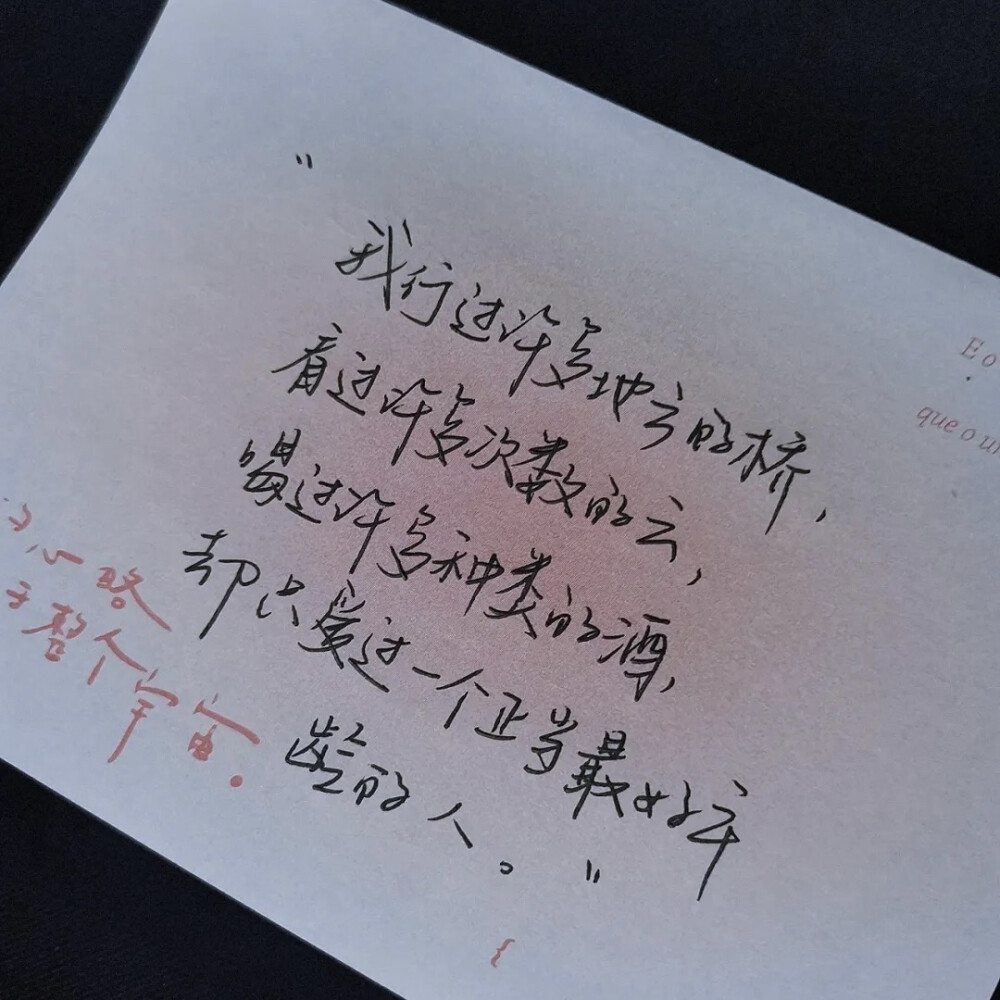 "
我行过许多地方的桥,
看过许多次数的云,
喝过许多种类的酒,
却只爱过一个正当最好年
龄的人。"
心略
整个宇宙.
Eo
queou
{